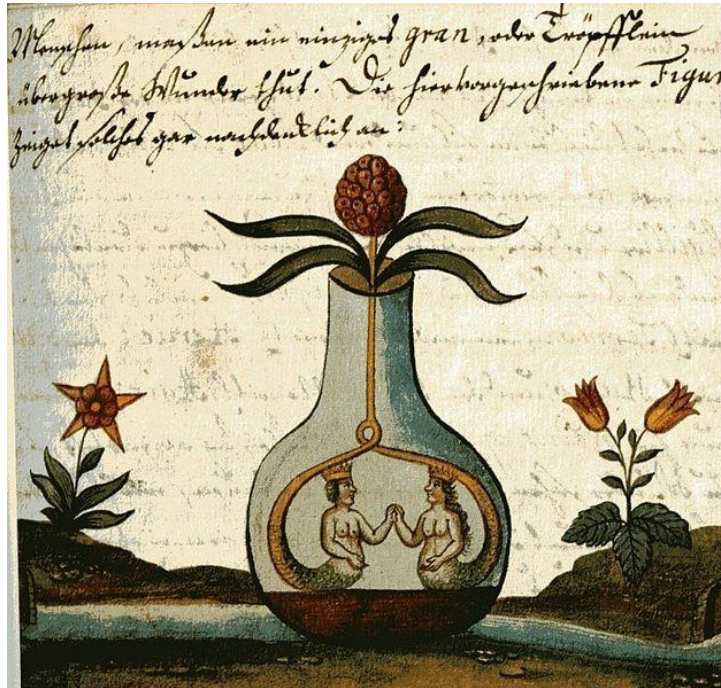 Menschen, maßen ein einziges gran, oder Tröpfflein
übergroße Wunder thut. Die hiervorgeschriebene Figur
zeiget solches gar nachdencklich an: